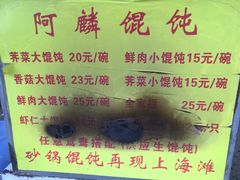 阿麟馄饨
荠菜大馄饨 20元/碗 鲜肉小馄饨15元/碗
香菇大馄饨 23元/碗 荠菜小馄饨15元/碗
鲜肉大馄饨 25元/碗 全家福 25元/碗
虾仁大馄饨 只
任意鸳鸯搭配(供应生馄饨)
砂锅馄饨再现上海滩